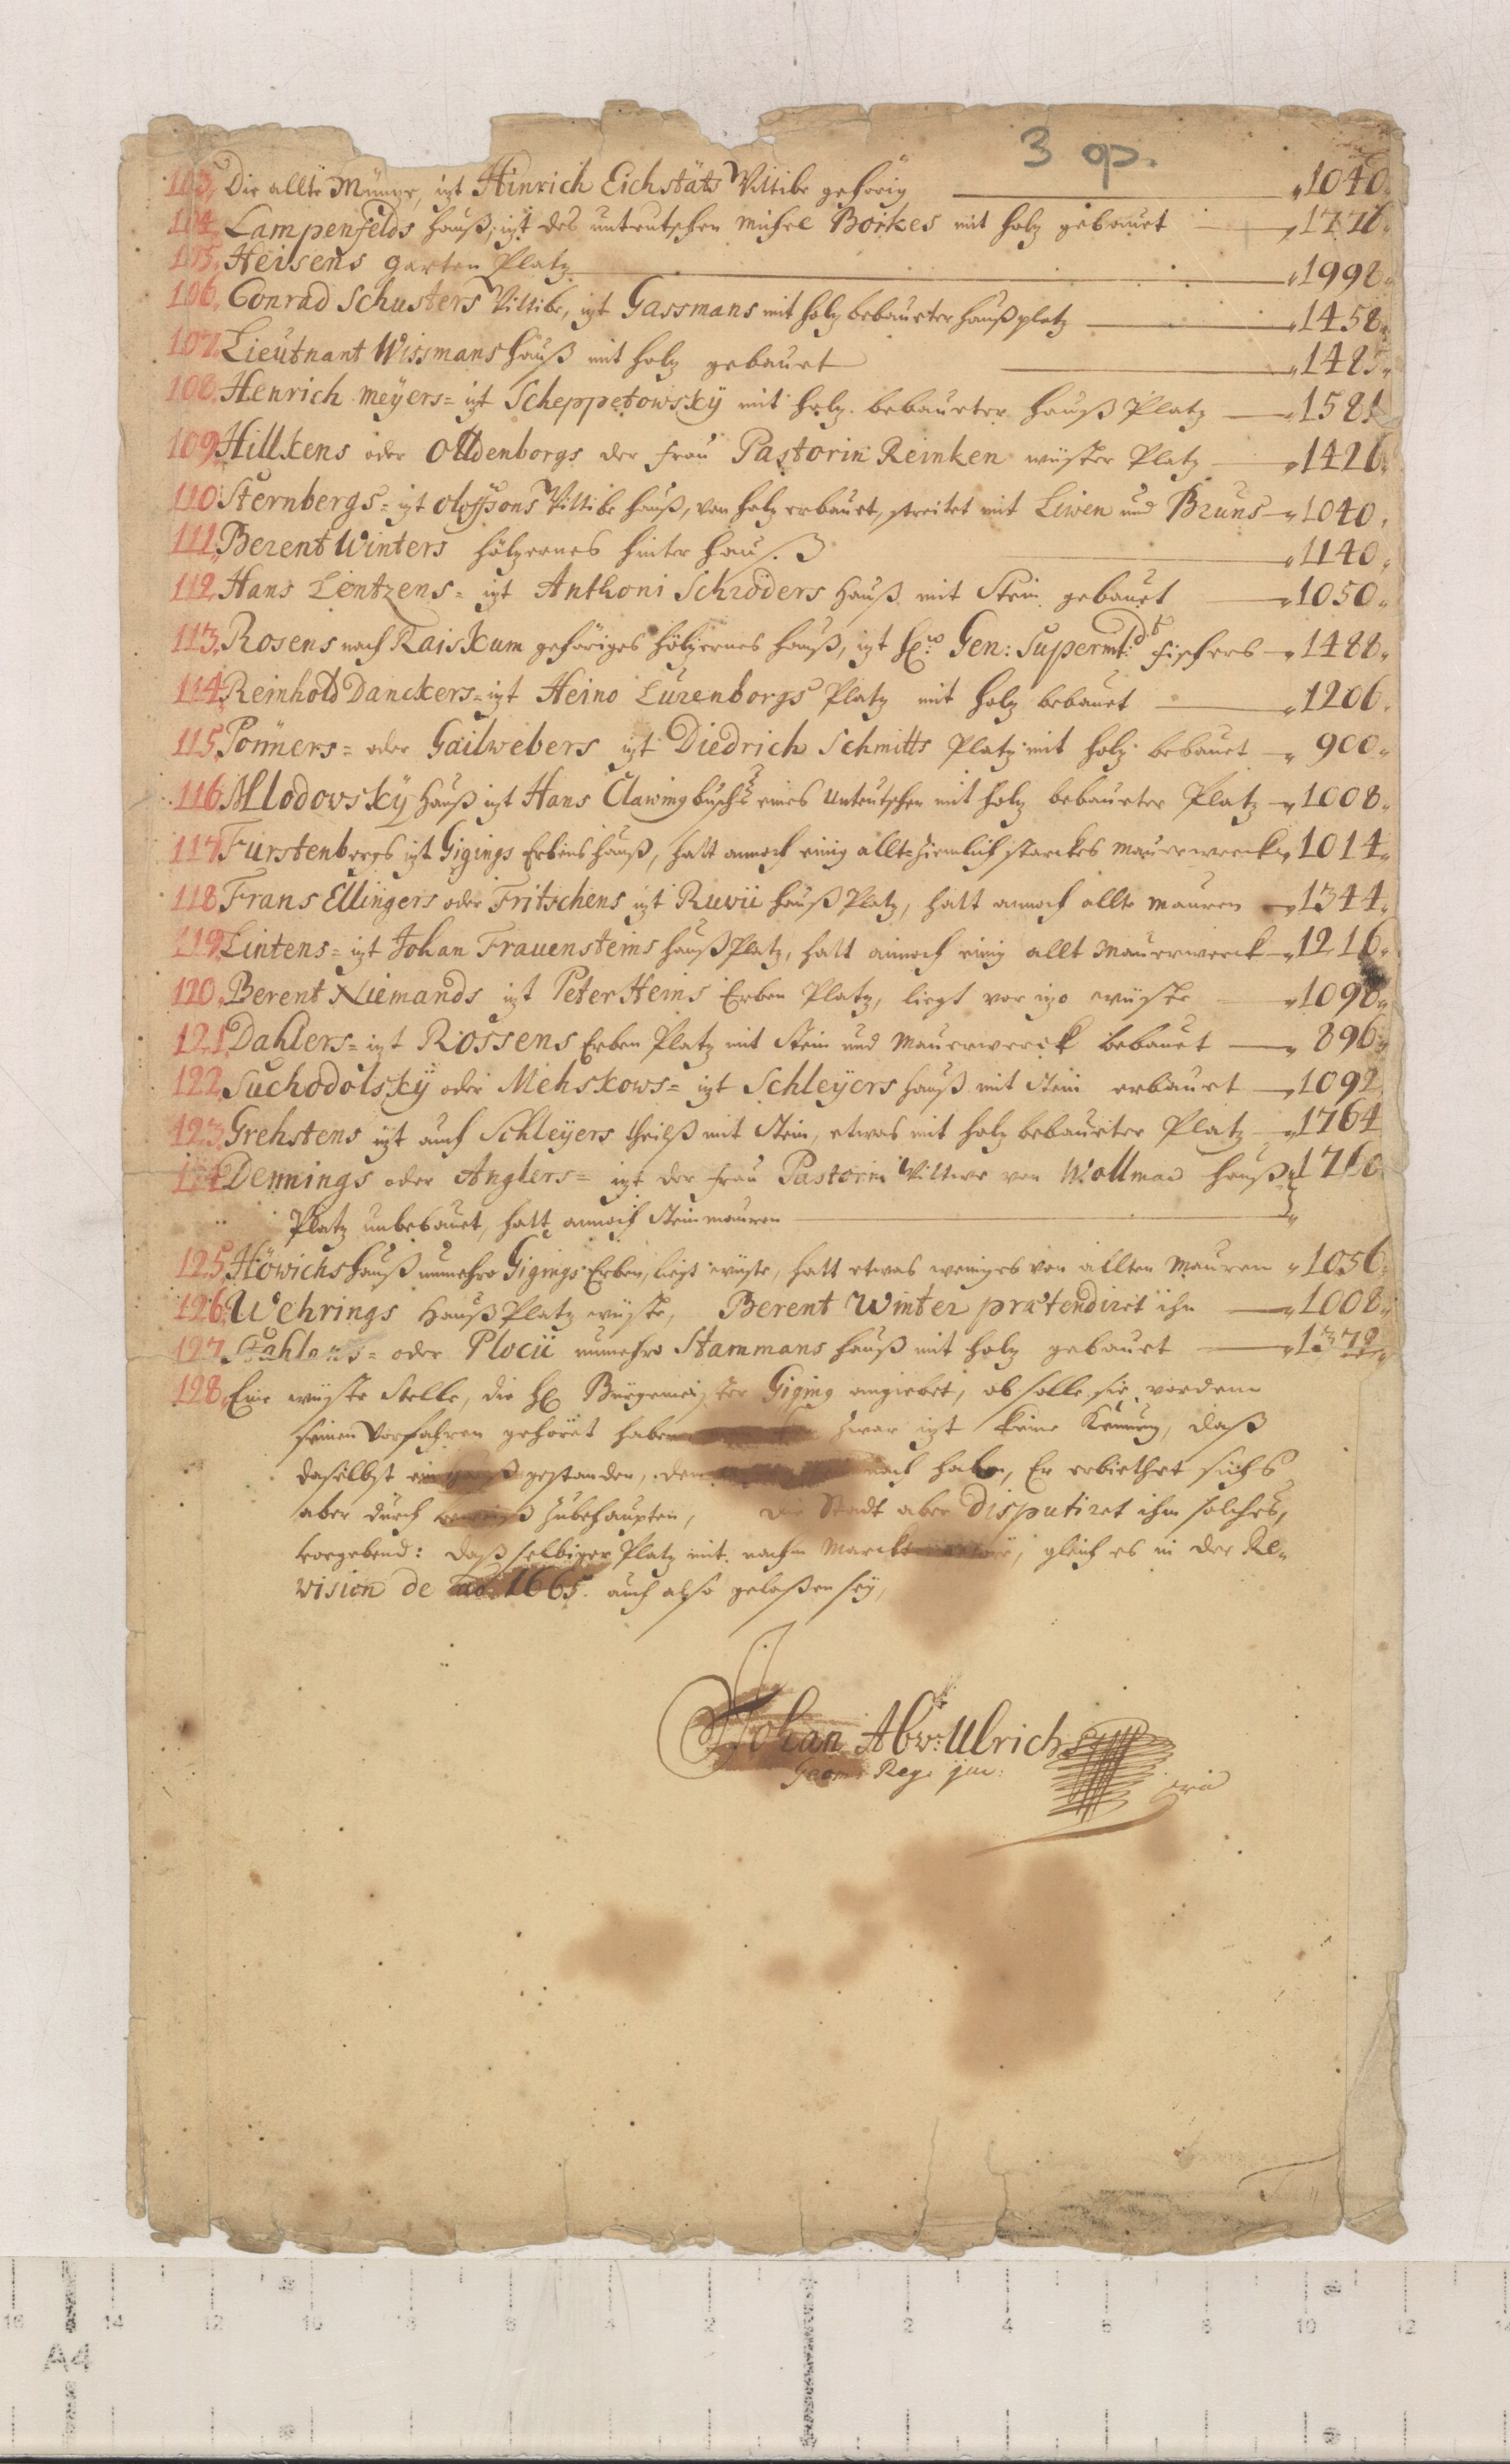 3 op.
103, Die allte Müntze, itzt Hinrich Eichstäts Wittibe gehörig „1040„
104, Lampenfelds hauß, itzt des unteutschen Michel Boikes mit holtz gebauet „1776„
105, Heisens garten Platz „1998„
106, Conrad Schusters Wittibe, itzt Gassmans mit holtz bebaueter haußplatz „1458„
107, Lieutnant Wissmans hauß mit holtz gebauet „1485„
108, Henrich Meÿers= itzt Scheppetowskÿ mit holtz bebaueter hauß Platz „1581
109 Hillkens oder Olldenborgs der Frau Pastorin Reinken wüster Platz „1426„
110 Sternbergs= itzt Oloffsons Wittibe hauß, von holtz erbauet, streitet mit Liwen und Bruns „1040„
111 Berent Winters höltzernes hinter hauß „1140„
112, Hans Lentzens= itzt Anthoni Schröders Hauß mit Stein gebauet „1050„
113, Rosens nach Raiskum gehöriges höltzernes hauß, itzt Gen: Fischers „1488„
114 Reinhold Danckers= itzt Heino Lurenborgs Platz mit holtz bebauet „1206„
115, Pönners= oder Gailwebers itzt Diedrich Schmitts Platz mit holtz bebauet „900„
116 Mlodovskÿ Hauß itzt Hans eines Unteutschen mit holtz bebaueter Platz „1008„
117 Fürstenbergs itzt Gigings Erbens hauß, hatt annoch einig allt= ziemlich starckes Mauerwerck „1014„
118 Frans Ellingers oder Fritschens itzt Ruvii hauß Platz, hatt annoch allte Mauren „1344„
119 Lintens= itzt Johan Frauensteins haußPlatz, hatt annoch einig allt Mauerwerck „1216„
120, Berent Niemands itzt Peter Heins Erben Platz, liegt vor itzo wüste „1090„
121 Dahlers= itzt Rossens Erben Platz mit Stein und Mauerwerck bebauet „896„
122 Suchodolskÿ oder Mehskows= itzt Schleÿers hauß mit Stein erbauet „1092
123 Grehstens itzt auch Schleÿers theilß mit Stein, etwas mit holtz bebaueter Platz „1764
124 Dennings oder Anglers= itzt der Frau Pastorin Wittwe von Wollmar hauß „1760
Platz unbebauet, hatt annoch Steinmauren
125, Höwichs hauß nunmehro Gigings Erben, liegt wüste, hatt etwas weniges von allten Mauren „1056„
126, Wehrings HaußPlatz wüste, Berent Winter prætendiret ihn „1008„
127 Stahlens= oder Plocii nunmehro Stammans hauß mit holtz gebauet „1372„
128, Eine wüste Stelle, die H. Bürgemeister Giging angiebet, ob solle sie vordem
seinen Vorfahren gehöret haben zwar itzt keine daß
daselbst ein hauß gestanden, noch haben, Er erbiethet sichs
aber durch zubehaupten, Die Stadt aber disputiret ihm solches,
vorgebend: daß selbiger Platz mit nachm Marckt gleich es in der Re„
vision de ao: 1665. auch also gelaßen seÿ,
Johan Abr: Ulrich
Geom: Reg: jur: